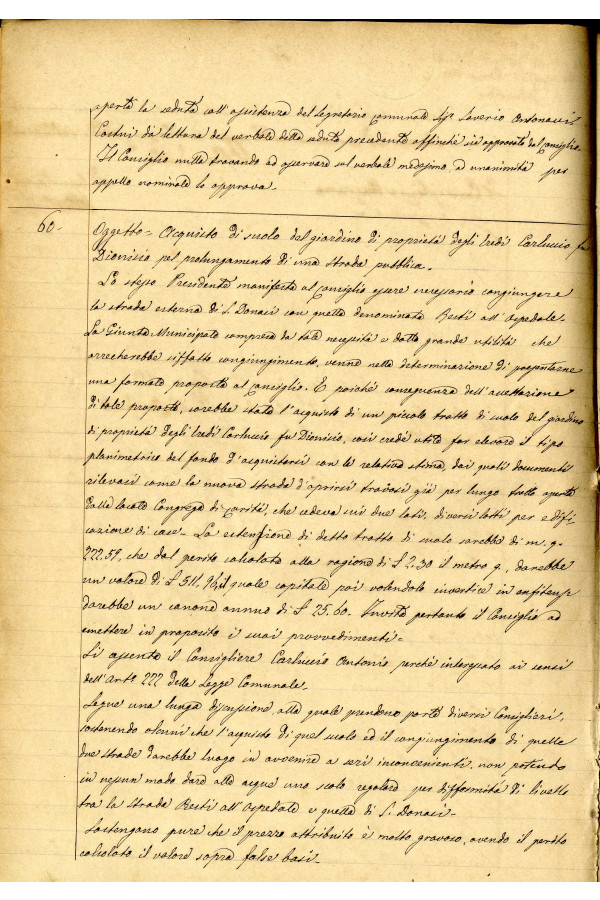 aperta la seduta coll'assistenza del Segretario Comunale Sig.r Saverio Antonacci.
Costui dà lettura del verbale della seduta precedente affinché sia approvato dal Consiglio.
Il Consiglio nulla trovando ad osservare sul verbale medesimo, ad unanimità per
appello nominale lo approva.
60-
Oggetto - Acquisto di suolo del giardino di proprietà degli Eredi Carluccio fu
Dionisio pel prolungamento di una strada pubblica.
Lo stesso Presidente manifesta al Consiglio essere necessario congiungere
la strada esterna di S. Donaci con quella denominata Resti all'Ospedale.
La Giunta Municipale compresa da tale necessità e dalla grande utilità che
arrecherebbe siffatto congiungimento, venne nella determinazione di presentarne
una formale proposta al Consiglio. E poiché conseguenza dell'accettazione
di tale proposta, sarebbe stata l'acquisto di un piccolo tratto di suolo del giardino
di proprietà degli Eredi Carluccio fu Dionisio, così credé utile far elevare il tipo
planimetrico del fondo d'acquistarsi con la relativa stima, dai quali documenti
rilevasi come la nuova strada d'aprirsi trovasi già per lungo tratto aperta
dalla locale Congrega di Carità, che cedeva sui due lati, diversi lotti per edifi-
cazione di case. La estenzione di detto tratto di suolo sarebbe di m. q.
222.59, che dal perito calcolata alla ragione di £ 2.30 il metro q., darebbe
un valore di £ 511,96, il quale capitale poi volendolo investire in enfiteusi
darebbe un canone annuo di £ 25.60. Invita pertanto il Consiglio ad
emettere in proposito i suoi provvedimenti.
Si assenta il Consigliere Carluccio Antonio perché interessato ai sensi
dell'Art.o 222 della Legge Comunale.
Segue una lunga discussione alla quale prendono parte diversi Consiglieri,
sostenendo alcuni che l'acquisto di quel suolo ed il congiungimento di quelle
due strade darebbe luogo in avvenire a seri inconvenienti, non potendo
in nessun modo dare alle acque uno scolo regolare per difformità di livello
tra la strada Resti all'Ospedale e quella di S. Donaci.
Sostengono pure che il prezzo attribuito è molto gravoso, avendo il perito
calcolato il valore sopra false basi.